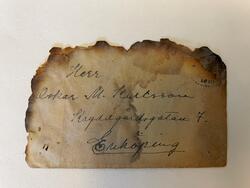 Herr
Oskar M. Karlsson
Kryddgårdsgatan 7.
Enköping